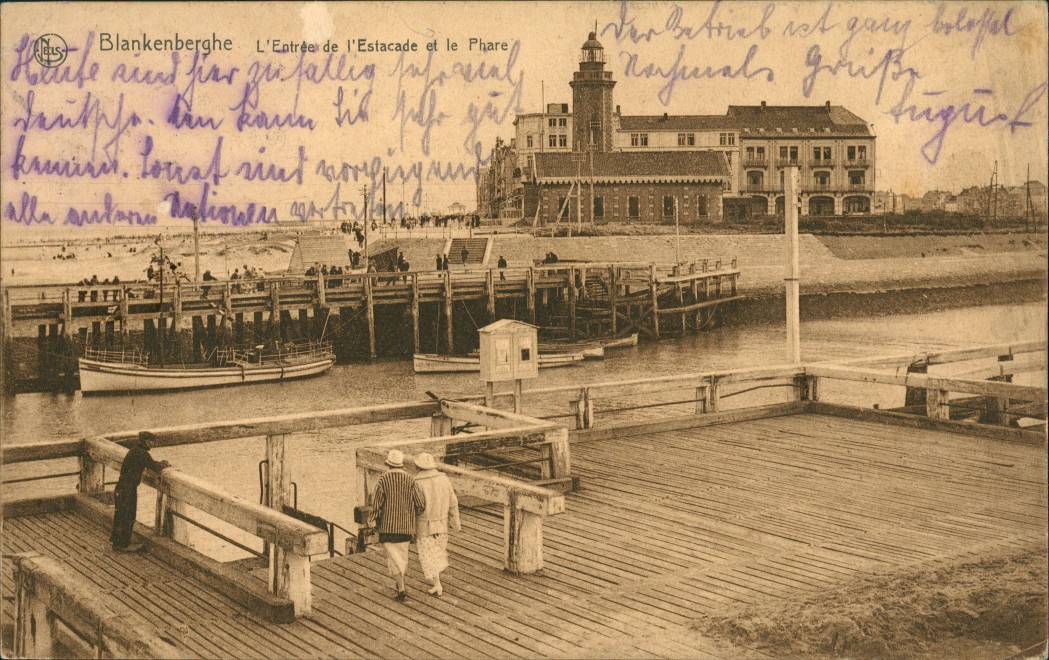 NELS
Blankenberghe L'Entrée de l'Estacade et le Phare
Heute sind hier zufällig sehr viel
deutsche. Um kann Sie sehr gut
kennen. Sonst sind vorwiegend
alle anderen Nationen vertreten
Der Betrieb ist ganz kolossal
Nochmals Grüße
August